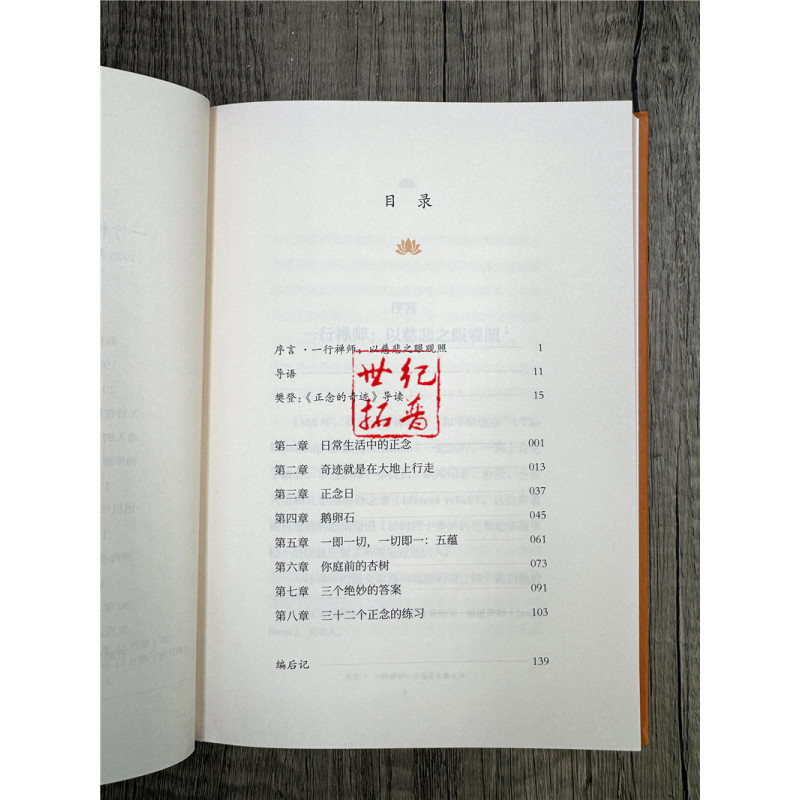 目 录
序言·一行禅师:以慈悲之眼观照 1
导语 11
樊登:《正念的奇迹》导读 15
世纪
拓普
第一章 日常生活中的正念 001
第二章 奇迹就是在大地上行走 013
第三章 正念日 037
第四章 鹅卵石 045
第五章 一即一切,一切即一:五蕴 061
第六章 你庭前的杏树 073
第七章 三个绝妙的答案 091
第八章 三十二个正念的练习 103
编后记 139